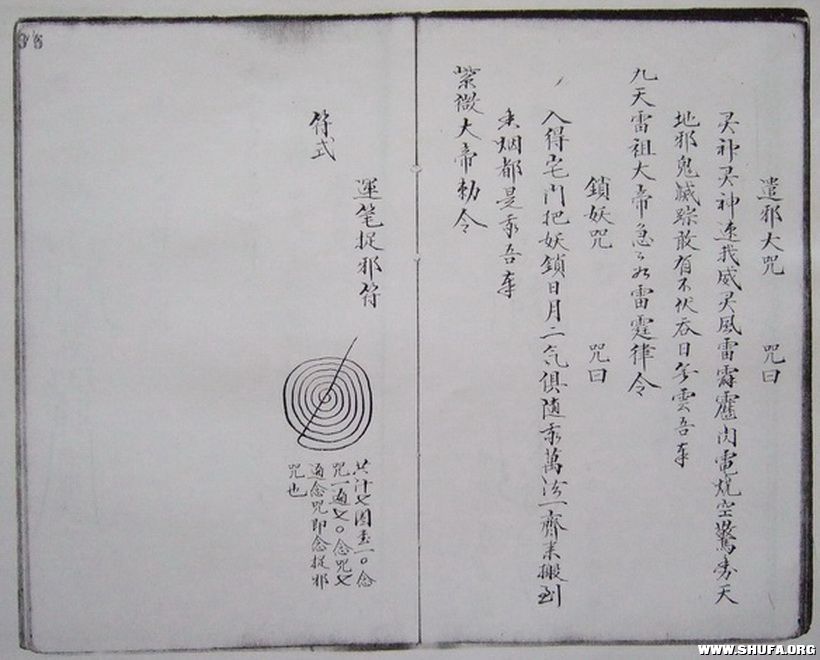 遣邪大咒　咒曰
灵神灵神速我威灵風雷霹靂闪電燒空驚動天
地邪鬼滅踪敢有不伏吞日 雲吾奉
九天雷祖大帝急急如雷霆律令
鎖妖咒　咒曰
入得宅门把妖鎖日月二气俱随 萬法一齊来搬到
香烟都是 吾奉
紫微大帝勅令
符式
運笔捉邪符
共计七圈画一〇念
咒一遍七〇念咒七
遍念咒即念捉邪
咒也
36
WWW.SHUFA.ORG